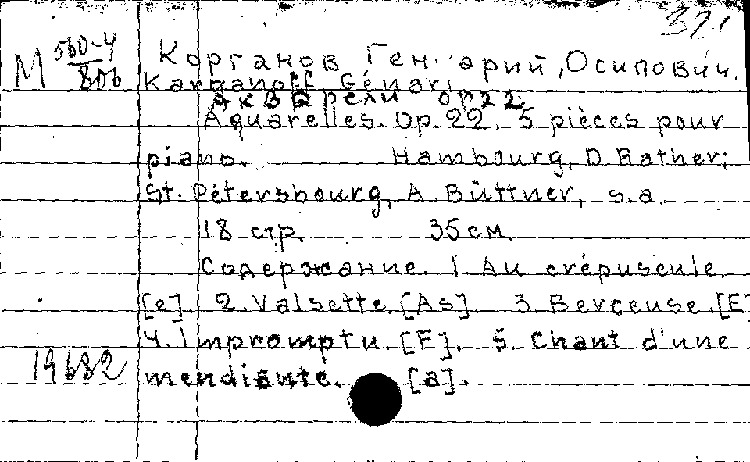 371
М 560-4/806
Корганов Генарий Осипович.
Karganoff Génari
Акварели ор 22
Aquarelles. Op. 22. 5 pièces pour
piano. Hambourg, D. Rather;
St. Pétersbourg, A. Büttner, s.a.
18 стр. 35 см.
Содержание. 1. Au crépuscule
[e] 2. Valsette. [As] 3. Berceuse. [E]
4. Impromptu. [F]. 5. Chant d'une
mendiante. [a].
19682